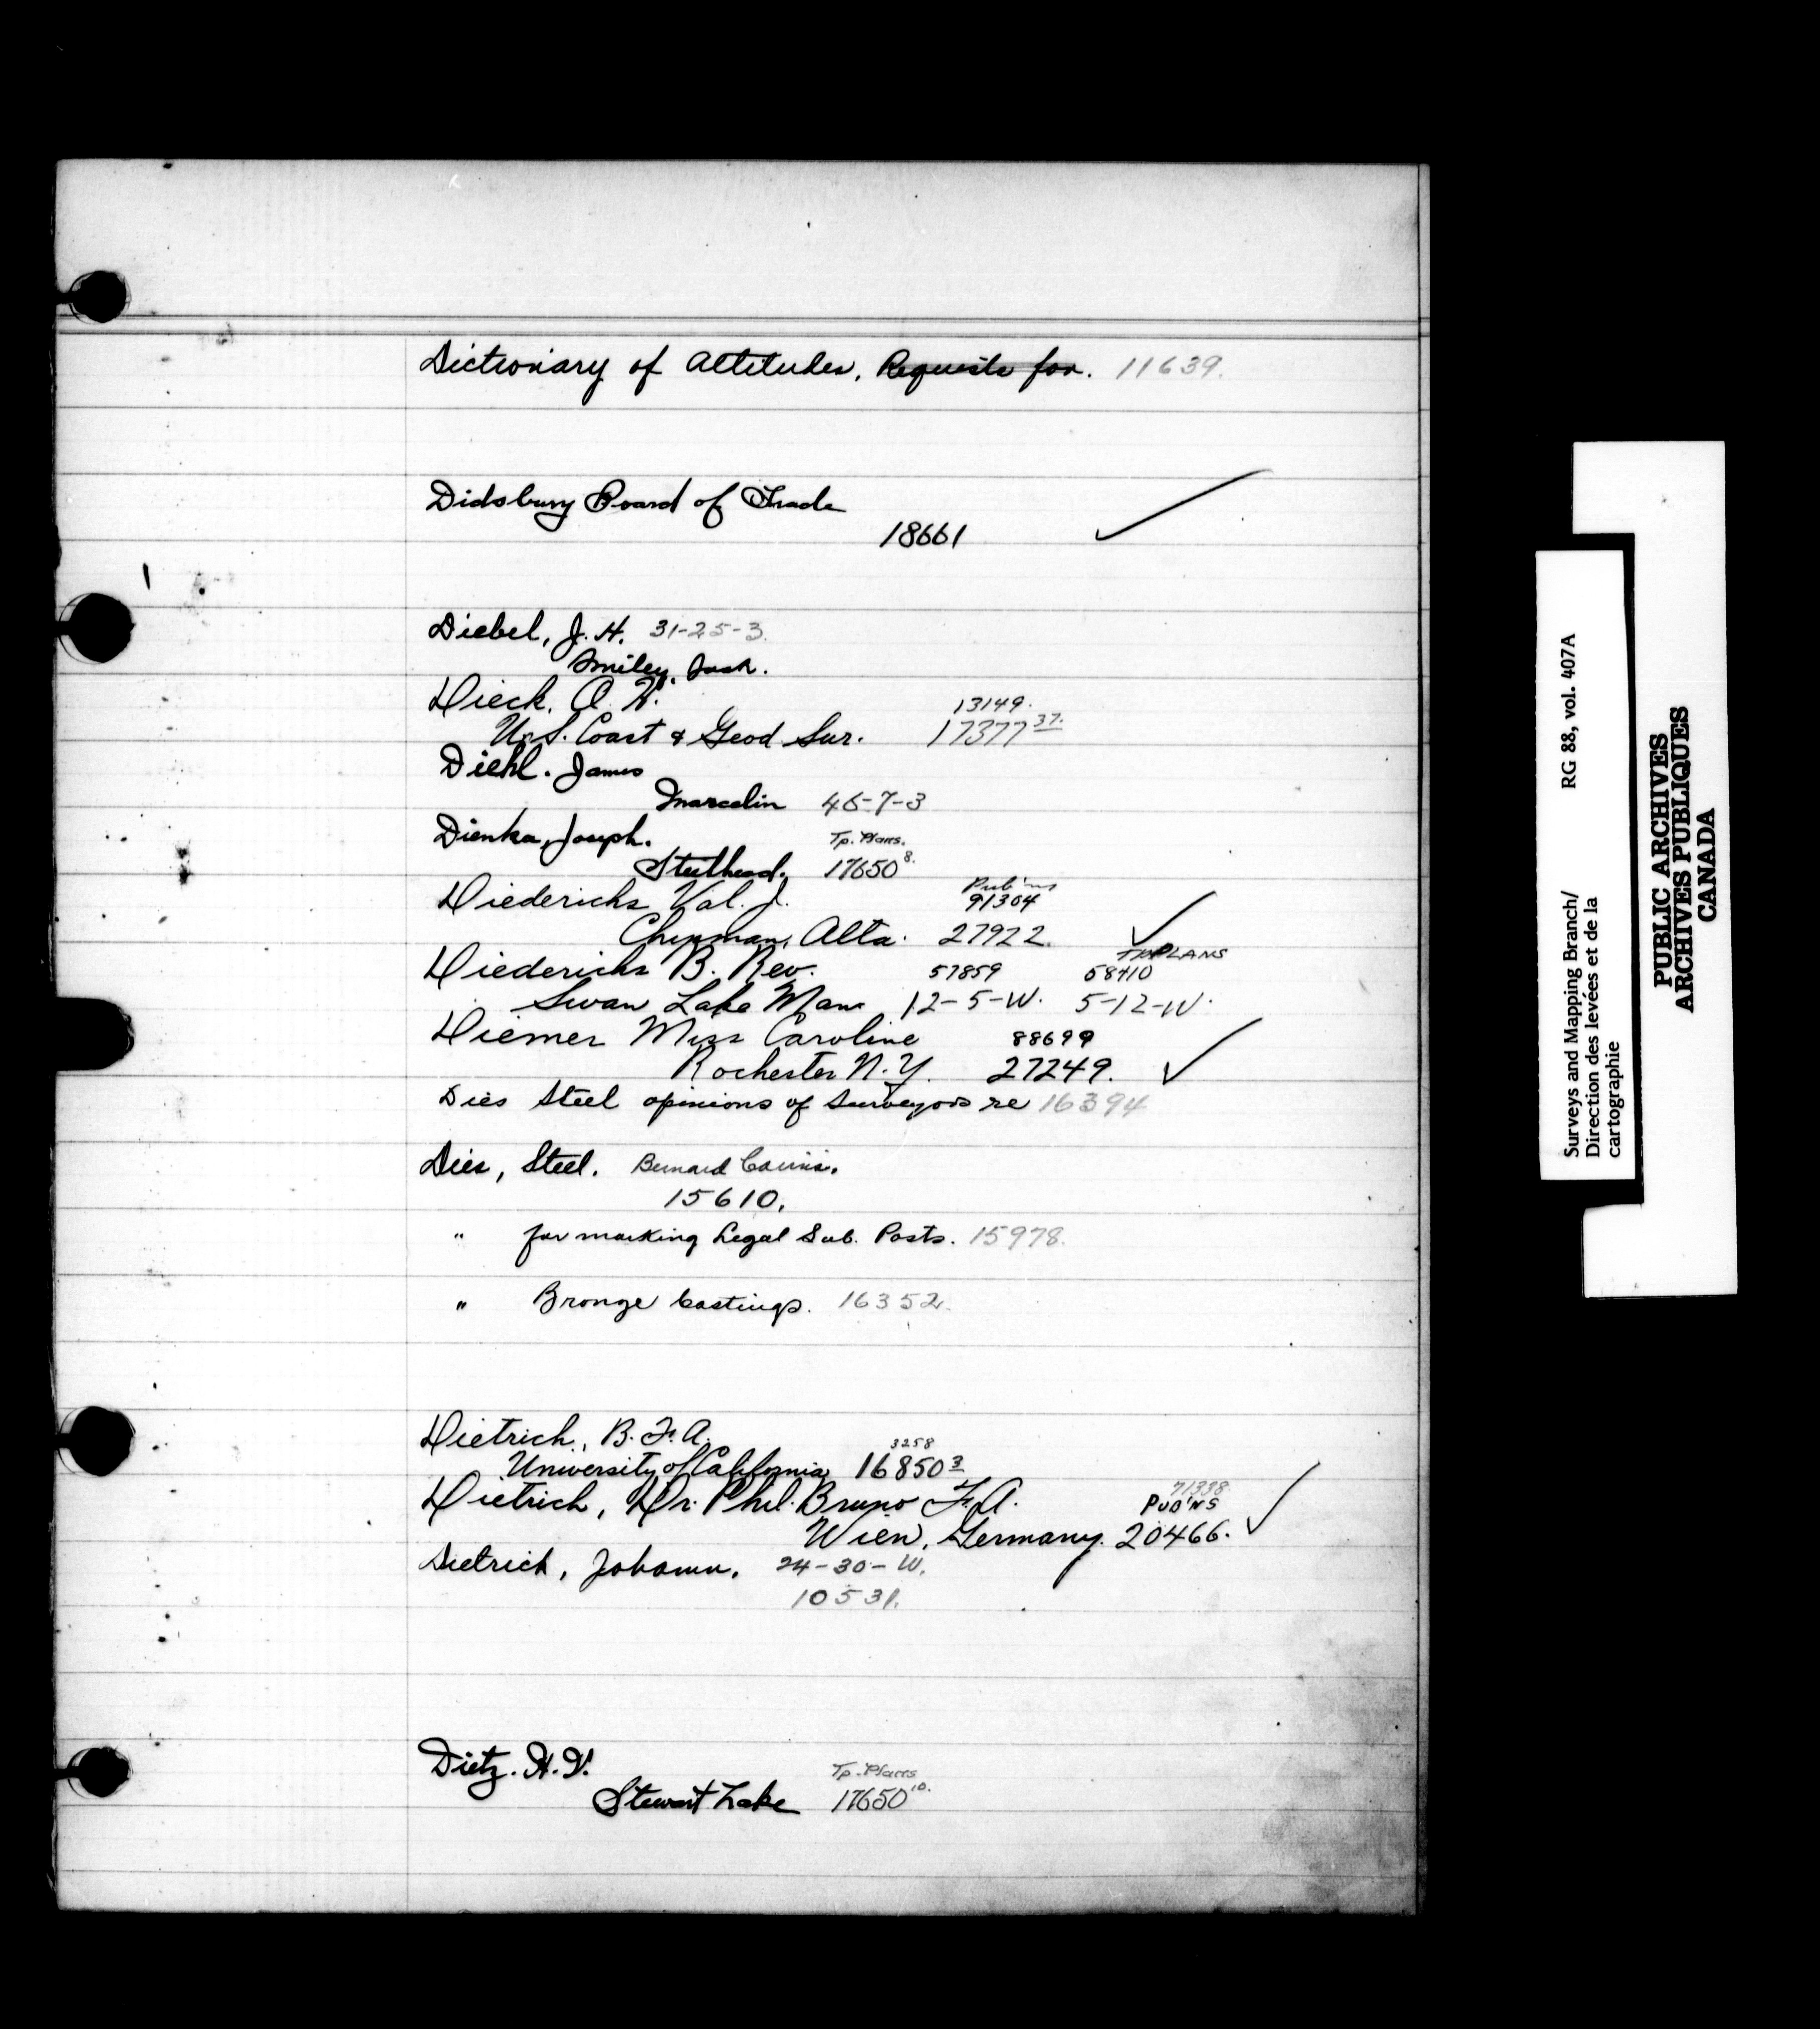 Dictionary of Altitudes, Requests for. 11639.
Didsbury Board of Trade
18661
Diebel, J. H. 31-25-3.
Smiley, Sask.
Dieck, O. W. 13149.
U.S. Coast & Geod Sur. 17377 37.
Diehl. James
Marcelin 46-7-3
Dienka, Joseph. Tp. Plans.
Steelhead. 17650 8.
Diederichs Val. J. Pub'ns 91304
Chipman, Alta. 27922.
Diederichs B. Rev. 57859 TP PLANS 58410
Swan Lake Man 12-5-W. 5-12-W.
Diemer Miss Caroline 88699
Rochester N.Y. 27249.
Dies Steel opinions of Surveyors re 16394
Dies, Steel. Bernard Cairns.
15610.
" for marking Legal Sub. Posts. 15978.
" Bronze Castings. 16352.
Dietrich, B. F. A. 3258
University of California 16850 3
Dietrich, Dr. Phil. Bruno F. A. 71338 PUB'NS
Wien, Germany. 20466.
Dietrich, Johann. 24-30-W.
10531.
Dietz. H. Tp. Plans
Stewart Lake 17650 10.
Surveys and Mapping Branch/ RG 88, vol. 407A
Direction des levées et de la
cartographie
PUBLIC ARCHIVES
ARCHIVES PUBLIQUES
CANADA